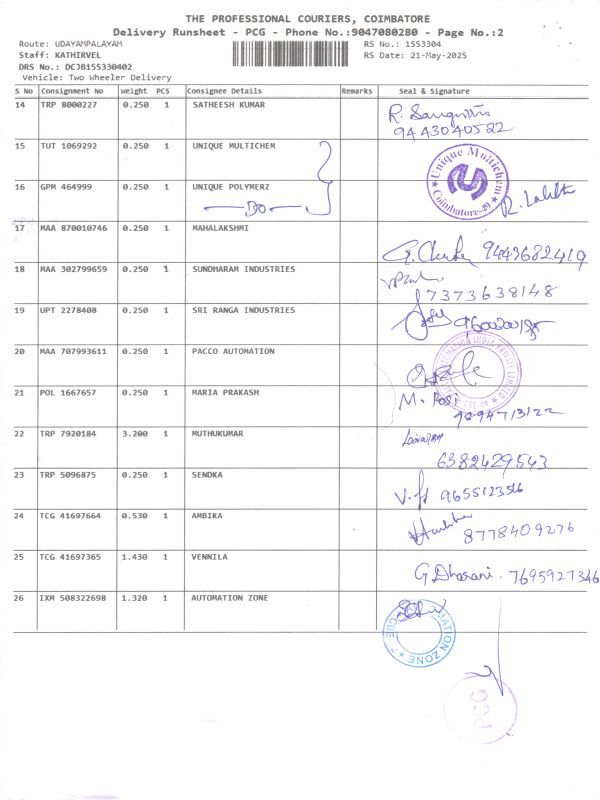 THE PROFESSIONAL COURIERS, COIMBATORE
Delivery Runsheet - PCG - Phone No.:9047080280 - Page No.:2
Route: UDAYAMPALAYAM RS No.: 1553304
Staff: KATHIRVEL RS Date: 21-May-2025
DRS No.: DCJB155330402
Vehicle: Two Wheeler Delivery
S No Consignment No Weight PCS Consignee Details Remarks Seal & Signature
14 TRP 8000227 0.250 1 SATHEESH KUMAR
9443040522
15 TUT 1069292 0.250 1 UNIQUE MULTICHEM
Unique Multichem
Coimbatore-49
16 GPM 464999 0.250 1 UNIQUE POLYMERZ
R. Lalitha
17 MAA 870010746 0.250 1 MAHALAKSHMI
9443682419
18 MAA 302799659 0.250 1 SUNDHARAM INDUSTRIES
7373638148
19 UPT 2278408 0.250 1 SRI RANGA INDUSTRIES
20 MAA 707993611 0.250 1 PACCO AUTOMATION
21 POL 1667657 0.250 1 MARIA PRAKASH
M. Rosi
22 TRP 7920184 3.200 1 MUTHUKUMAR
6382429543
23 TRP 5096875 0.250 1 SENDKA
9655123516
24 TCG 41697664 0.530 1 AMBIKA
8778409276
25 TCG 41697365 1.430 1 VENNILA
G. Dharani. 7695927346
26 IXM 508322698 1.320 1 AUTOMATION ZONE
PCG